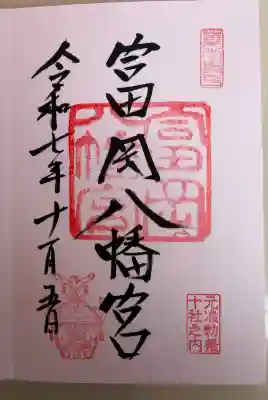 元准勅祭
十社之内
富岡八幡宮
富岡
八幡宮
令和七年十一月五日